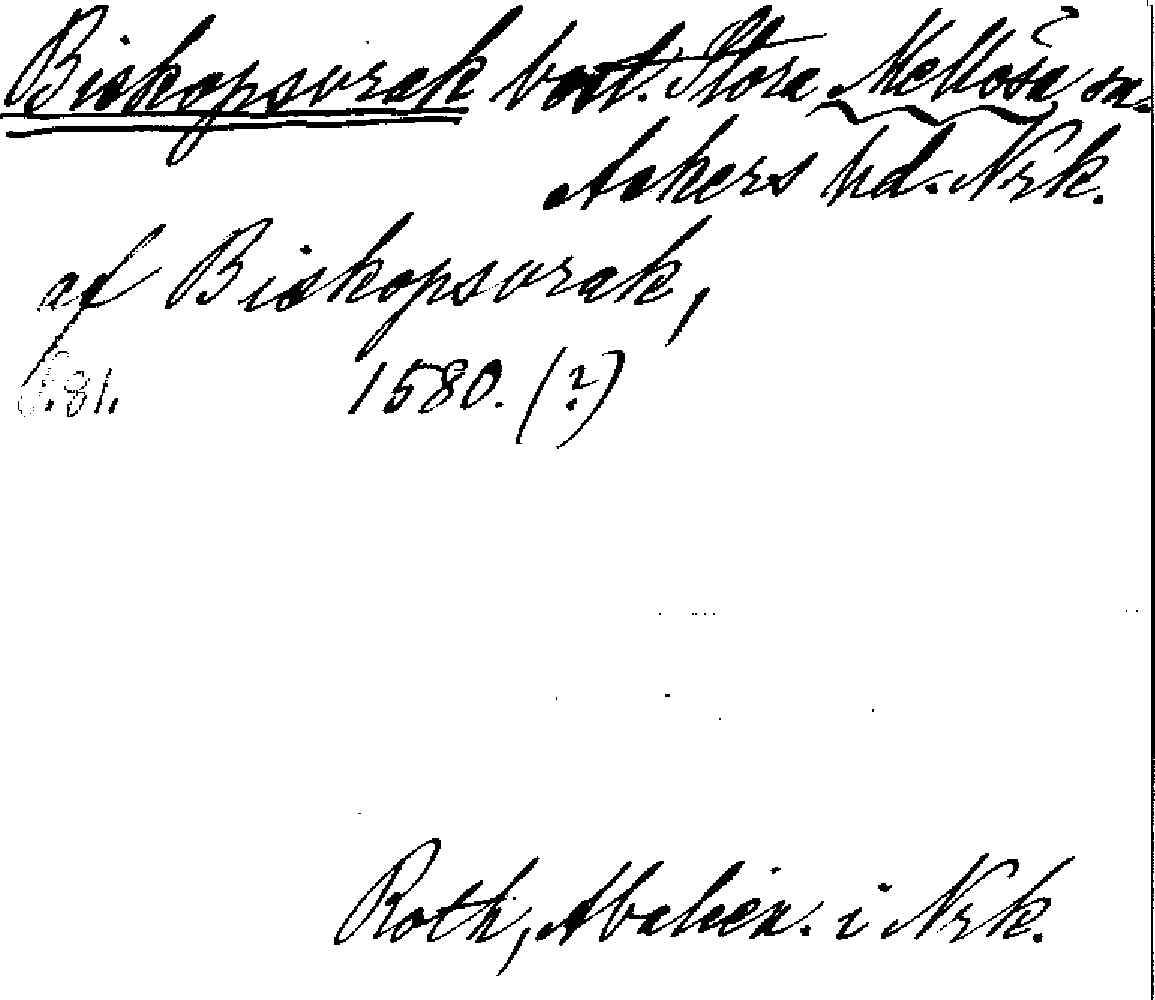 Biskopsvrak bost. Stora Mellösa sn.
Askers hd. Nrk.
af Biskopsvrak,
S. 81. 1580. (?)
Roth, Abalien. i Nrk.